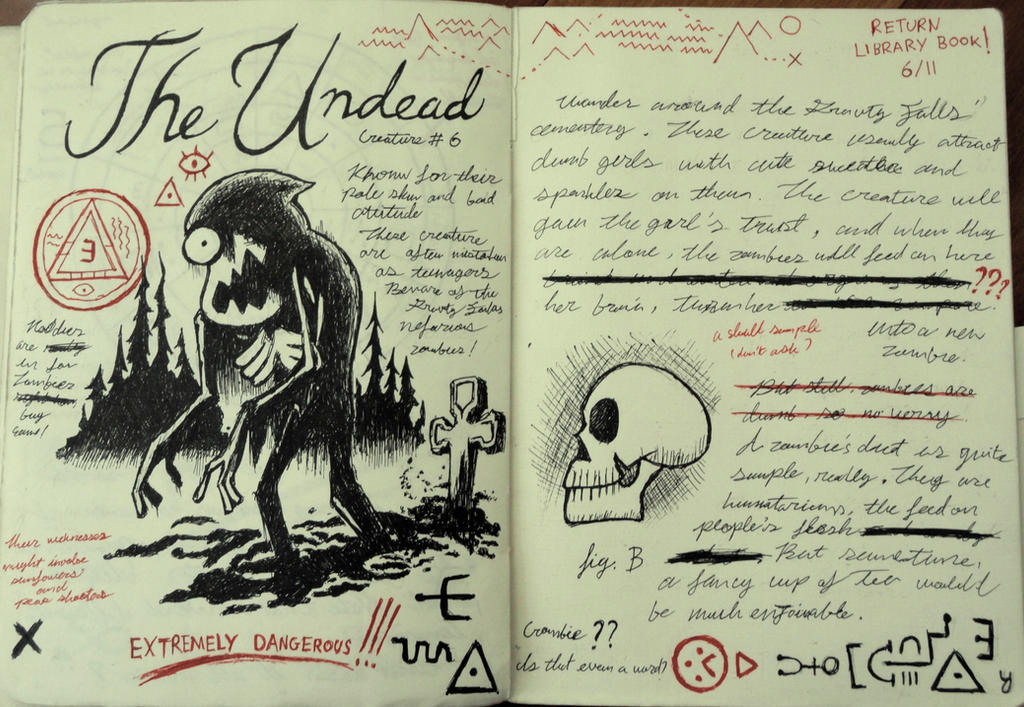 The Undead
Creature # 6
Known for their
pale skin and bad
attetude
These creature
are often mistaken
as teenagers
Beware of the
Gravity Falls
nefarious
zombies!
Noddies
are
in for
Zombies
buy
guns!
Their weknesses
might involve
sunflowers
and
pea shooters
X
EXTREMELY DANGEROUS!!!
RETURN
LIBRARY BOOK!
6/11
Wander around the Gravity Falls'
cementery. These creature usually attract
dumb girls with cute and
sparkles on them. The creature will
gain the garl's trust, and when they
are alone, the zombies will feed on here
???
her brain, turn her
into a new
zombie.
a skull sample
(don't ask)
But still, zombies are
dumb so no worry.
A zombie's diet is quite
simple, really. They are
humatarians, the feed on
people's flesh
But sometime,
a fancy cup of tee would
be much enjoyable.
fig. B
Crombie ??
Is that even a word?